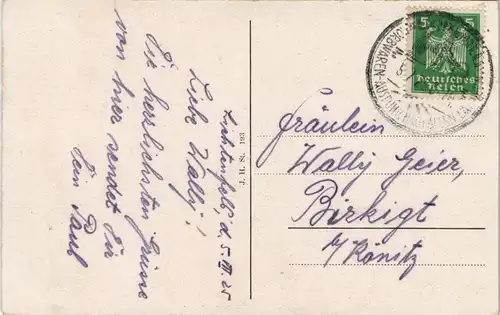 Lichtenfels, d. 5. VII. 25
Liebe Wally!
Die herzlichsten Grüsse
von hier sendet Dir
Dein Paul
J. H. St. 193
5 5
Deutsches
Reich
Fräulein
Wally Geier,
Birkigt
b/ Könitz